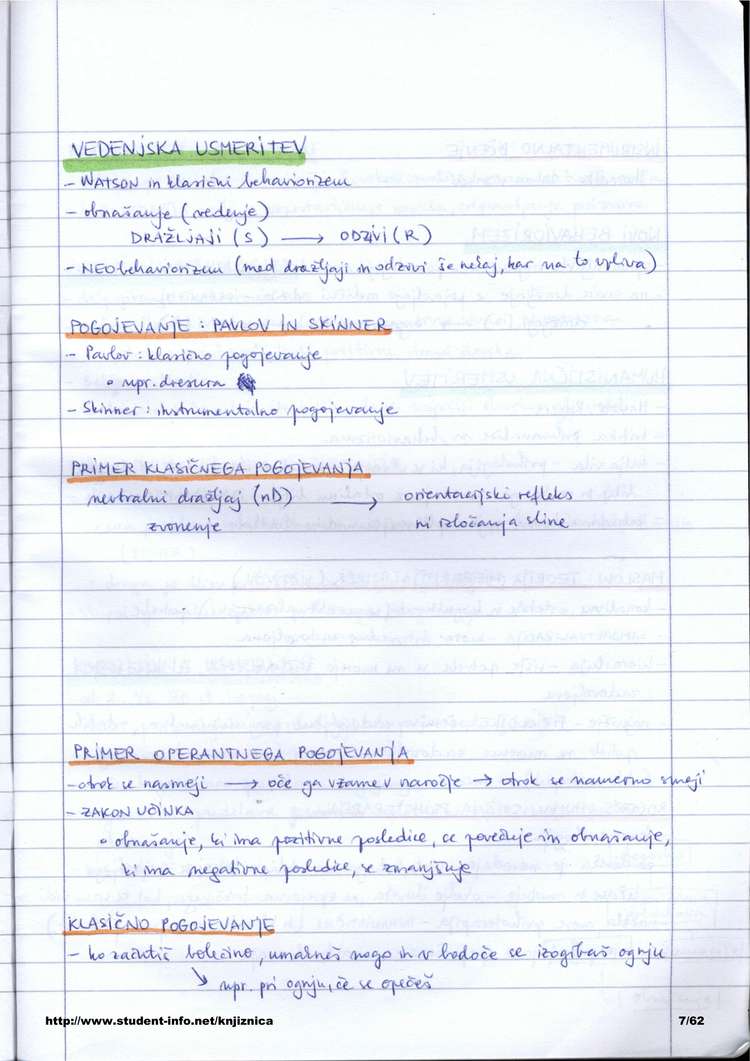 VEDENJSKA USMERITEV
- WATSON in klasični behaviorizem
- obnašanje (vedenje)
DRAŽLJAJI (S) → ODZIVI (R)
- NEObehaviorizem (med dražljaji in odzivi še nekaj, kar na to vpliva)
POGOJEVANJE : PAVLOV IN SKINNER
- Pavlov : klasično pogojevanje
• npr. dresura
- Skinner : instrumentalno pogojevanje
PRIMER KLASIČNEGA POGOJEVANJA
nevtralni dražljaj (nD) → orientacijski refleks
zvonenje ni izločanja sline
PRIMER OPERANTNEGA POGOJEVANJA
- otrok se nasmeji → oče ga vzame v naročje → otrok se namerno smeji
- ZAKON UČINKA
• obnašanje, ki ima pozitivne posledice, se povečuje in obnašanje,
ki ima negativne posledice, se zmanjšuje
KLASIČNO POGOJEVANJE
- ko začutiš bolečino, umakneš nogo in v bodoče se izogibaš ognju
↳ npr. pri ognju, če se opečeš
http://www.student-info.net/knjiznica 7/62